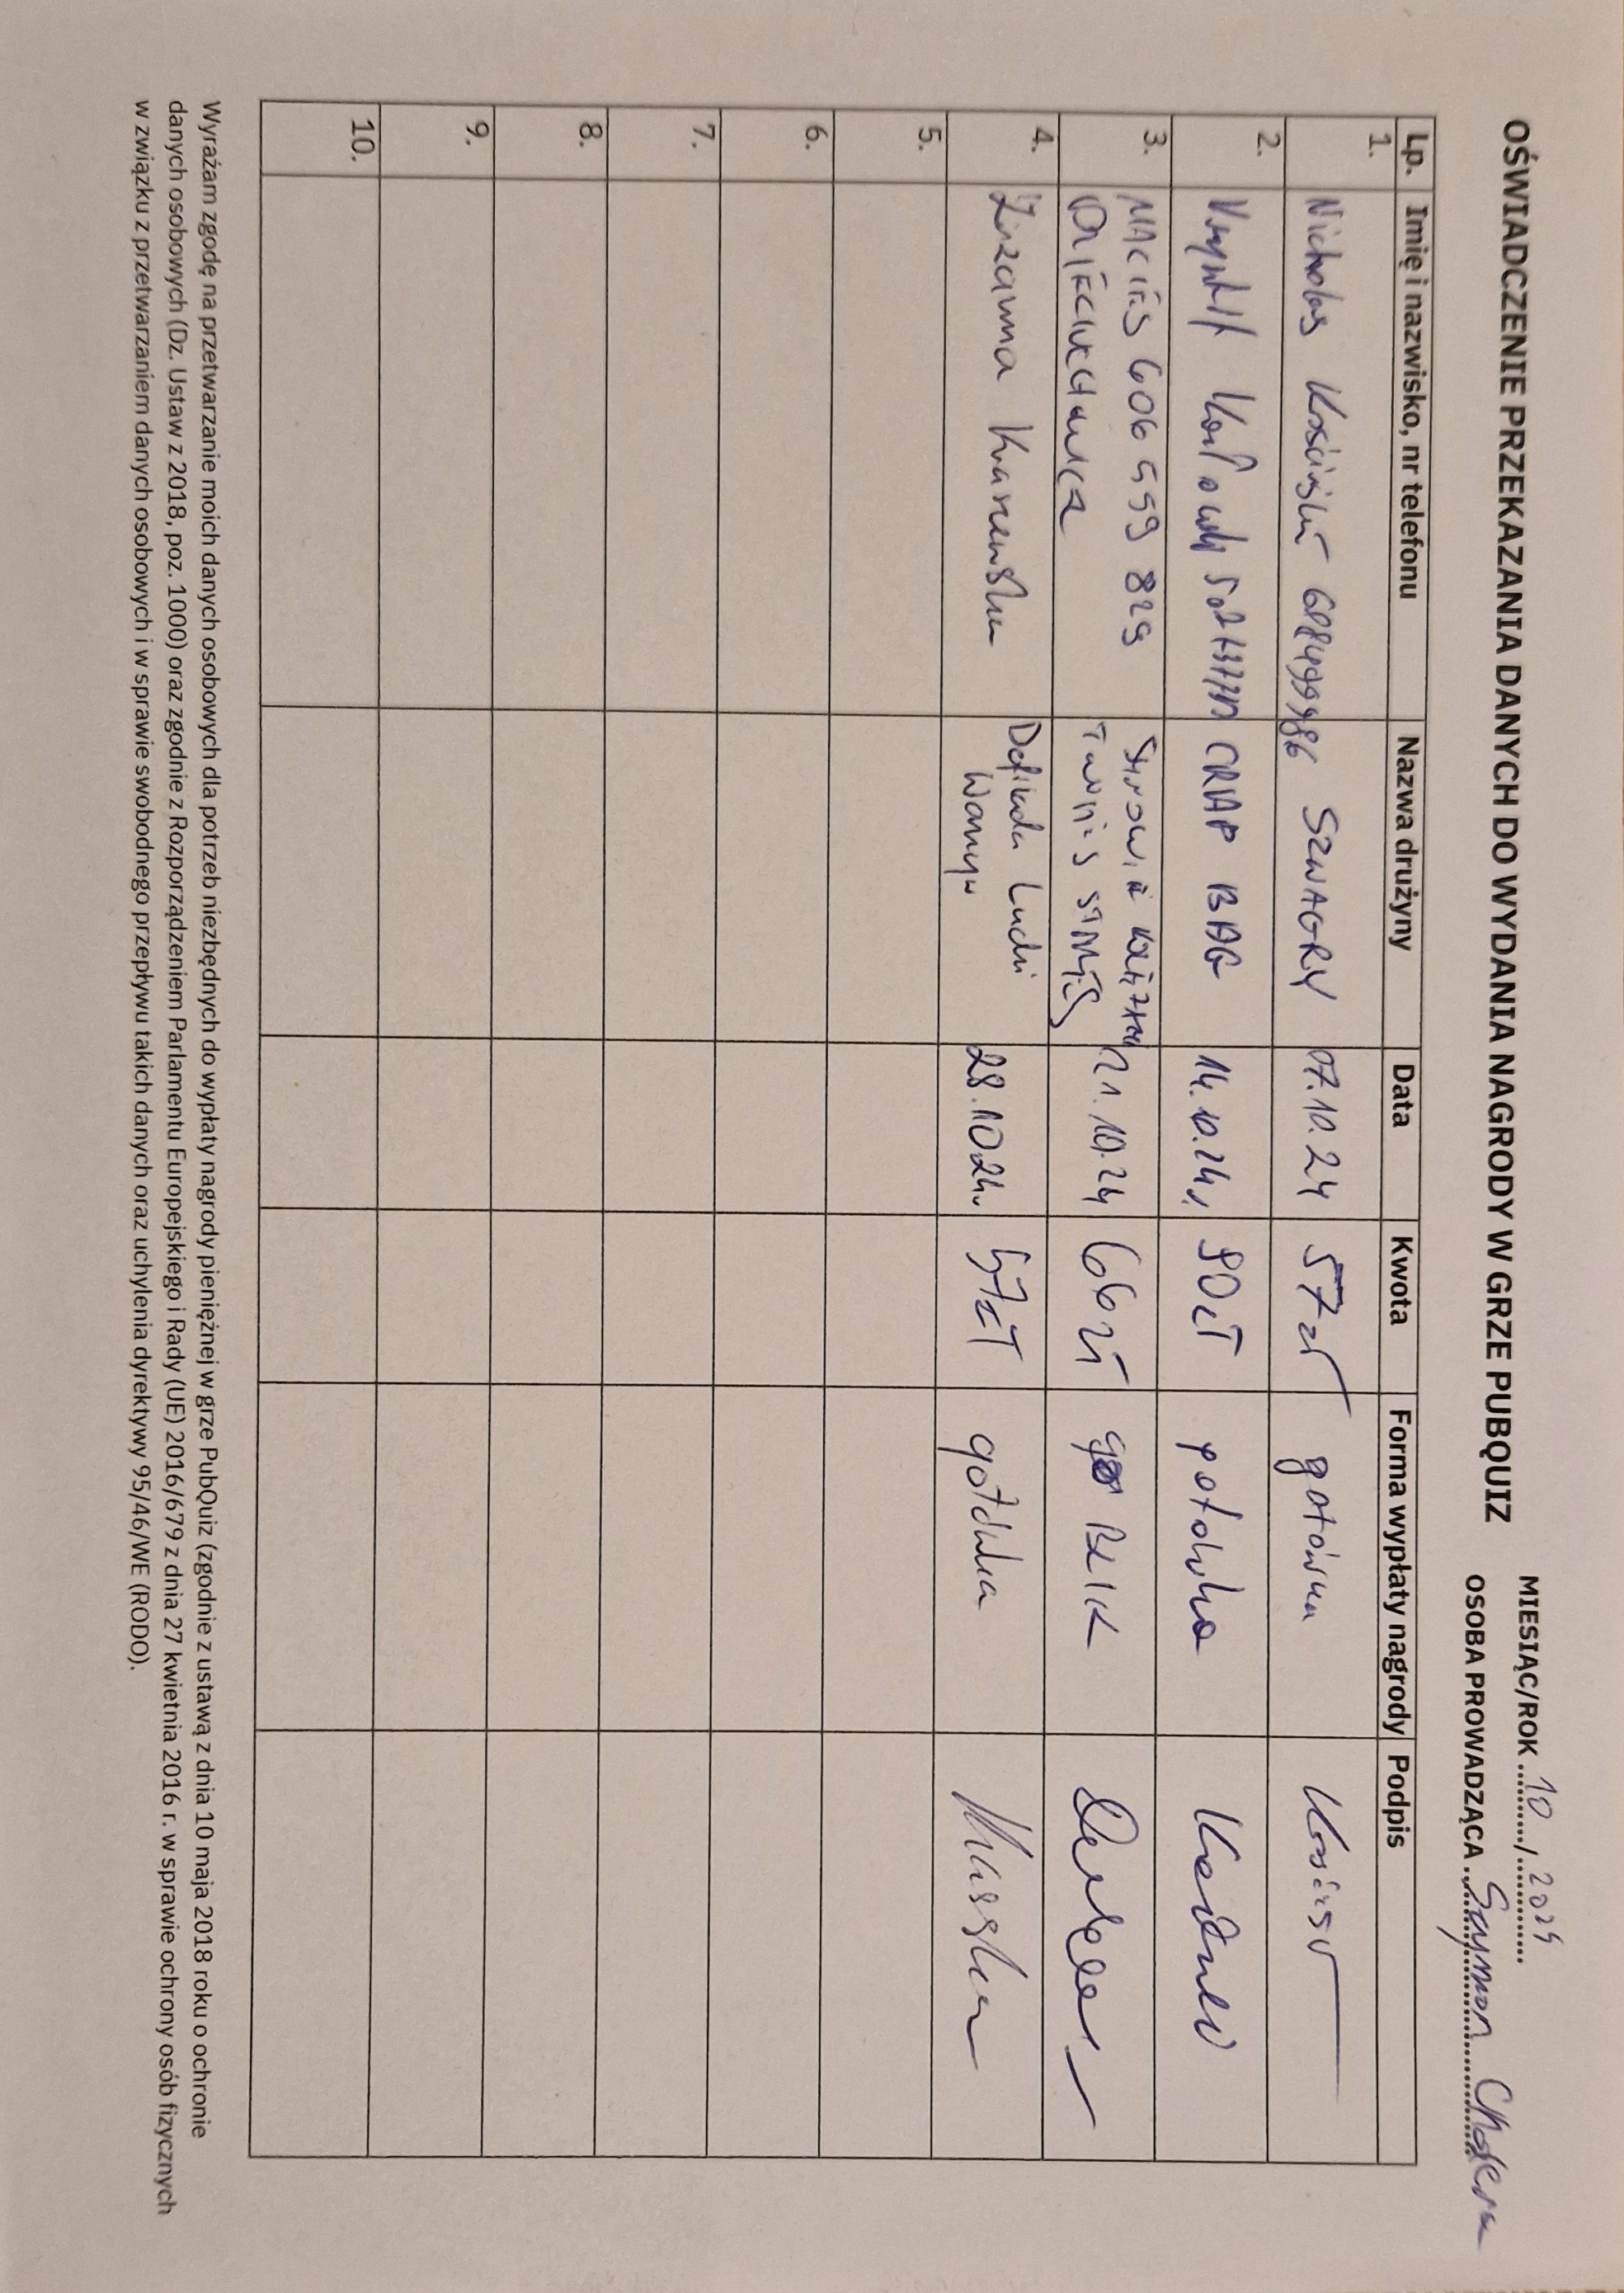 OŚWIADCZENIE PRZEKAZANIA DANYCH DO WYDANIA NAGRODY W GRZE PUBQUIZ
MIESIĄC/ROK 10 / 2024
OSOBA PROWADZĄCA Szymon
Lp. Imię i nazwisko, nr telefonu Nazwa drużyny Data Kwota Forma wypłaty nagrody Podpis
1. Nicholas Kościński 608499986 SZWAGRY 07.10.24 57 zł gotówka
2. CRAP BAG 14.10.24r 90 zł gotówka
3. MACIEJ 606 459 829 21.10.24 66 zł BLIK
4. Zuzanna Defilada Ludzi 28.10.24r 57 zł gotówka
5.
6.
7.
8.
9.
10.
Wyrażam zgodę na przetwarzanie moich danych osobowych dla potrzeb niezbędnych do wypłaty nagrody pieniężnej w grze PubQuiz (zgodnie z ustawą z dnia 10 maja 2018 roku o ochronie
danych osobowych (Dz. Ustaw z 2018, poz. 1000) oraz zgodnie z Rozporządzeniem Parlamentu Europejskiego i Rady (UE) 2016/679 z dnia 27 kwietnia 2016 r. w sprawie ochrony osób fizycznych
w związku z przetwarzaniem danych osobowych i w sprawie swobodnego przepływu takich danych oraz uchylenia dyrektywy 95/46/WE (RODO).